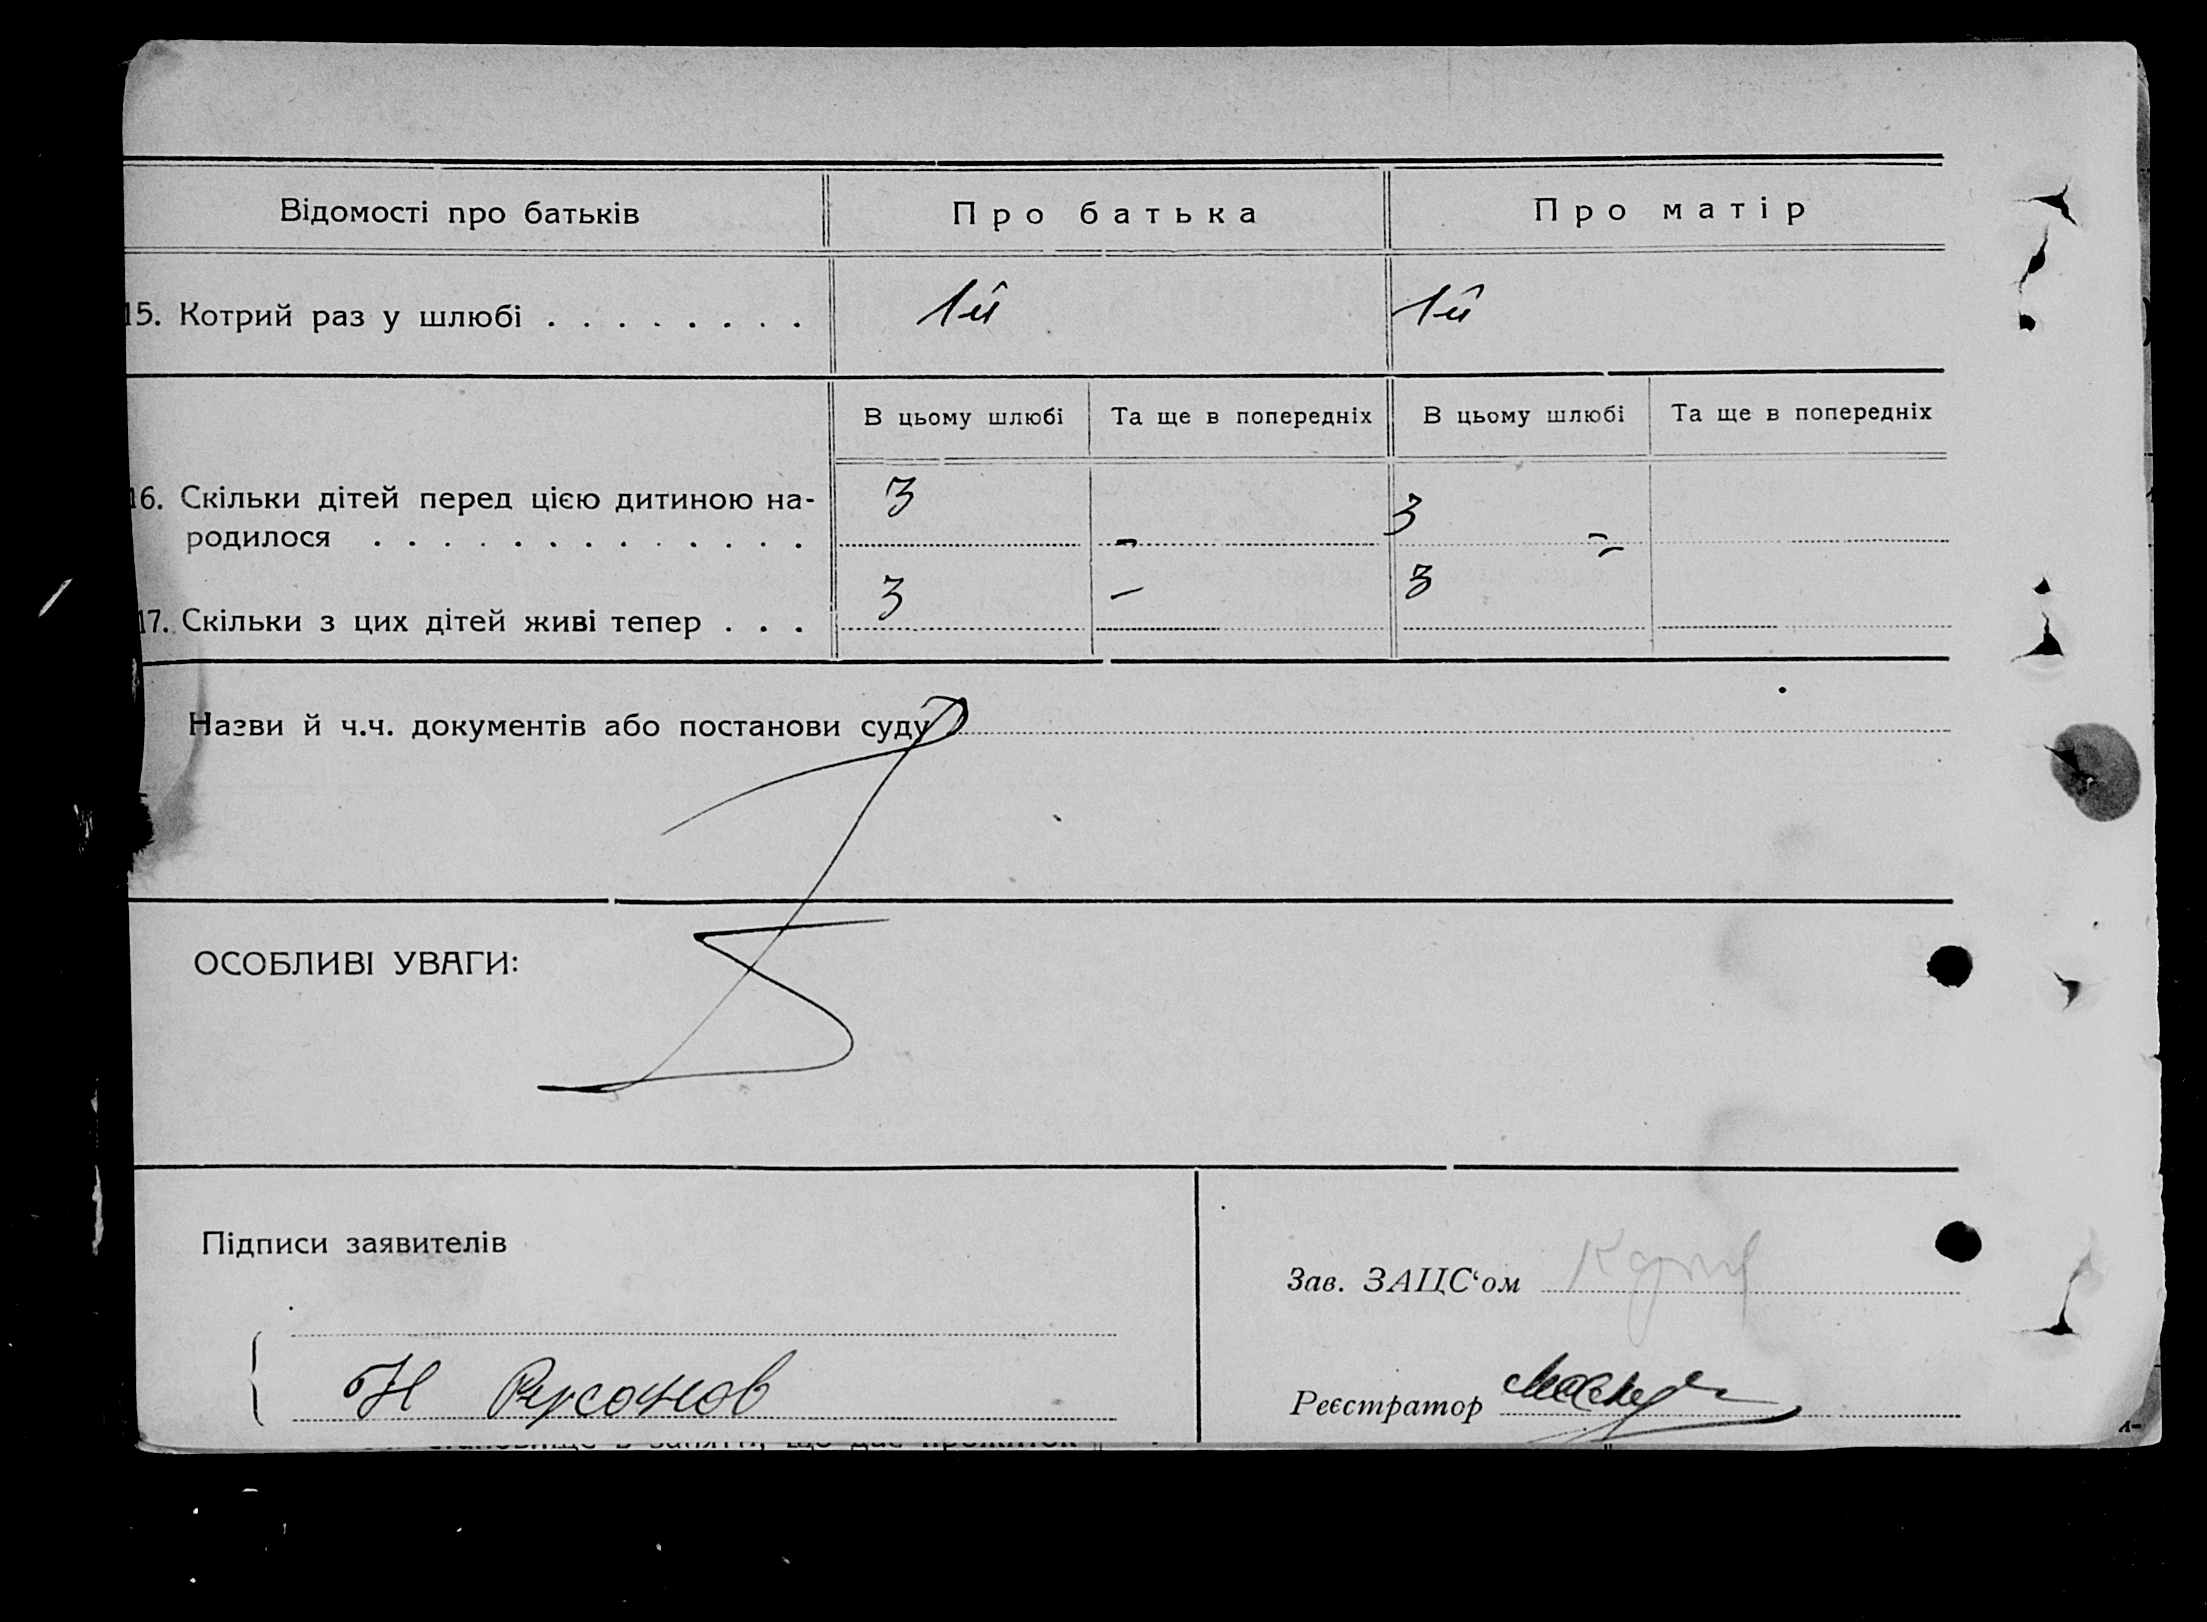 Відомості про батьків Про батька Про матір
15. Котрий раз у шлюбі . . . . . . . . 1й 1й
В цьому шлюбі Та ще в попередніх В цьому шлюбі Та ще в попередніх
16. Скільки дітей перед цією дитиною на-
родилося . . . . . . . . . . . . . 3 - 3 -
17. Скільки з цих дітей живі тепер . . . 3 - 3 -
Назви й ч.ч. документів або постанови суду
ОСОБЛИВІ УВАГИ:
Підписи заявителів
Зав. ЗАЦС‘ом
Н
Реєстратор
становище в занятті, що дає прожиток